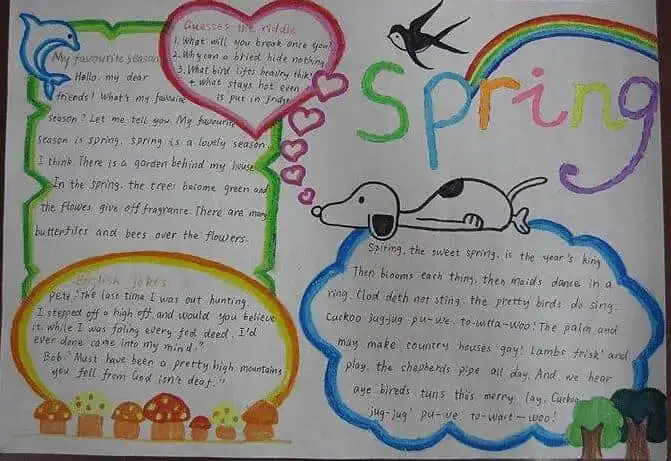 Guesses the riddle
1. What will you break once you
2. Why can a bried hide nothing
3. What bird lifts heavry thik
4. what stays hot even
is put in fridge
Spring
My favourite season
Hallo. my dear
friends! What's my favuine
season? Let me tell you. My favourite
season is spring, spring is a lovely season,
I think. There is a garden behind my house
In the spring, the trees become green and
the flowes give off fragranre. There are many
butterfiles and bees over the flowers.
English jokes
Pete: "The last time I was out hunting.
I stepped off a high off, and would you believe
it. while I was foling every fed deed. I'd
ever done came into my mind."
Bob: "Must have been a pretty high mountaing
you fell from God isn't deaf."
Spiring, the sweet spring, is the year's king
Then blooms each thing, then maids dance in a
ring. Clod doth not sting, the pretty birds do sing.
Cuckoo jug-jug pu-we, to-witta-woo! The palm and
may make country houses gay! Lambs frisk' and
play, the shepherds pipe all day. And we hear
aye bireds tuns this merry lay. Cuckoo
jug-jug' pu-we, to-wait-woo!